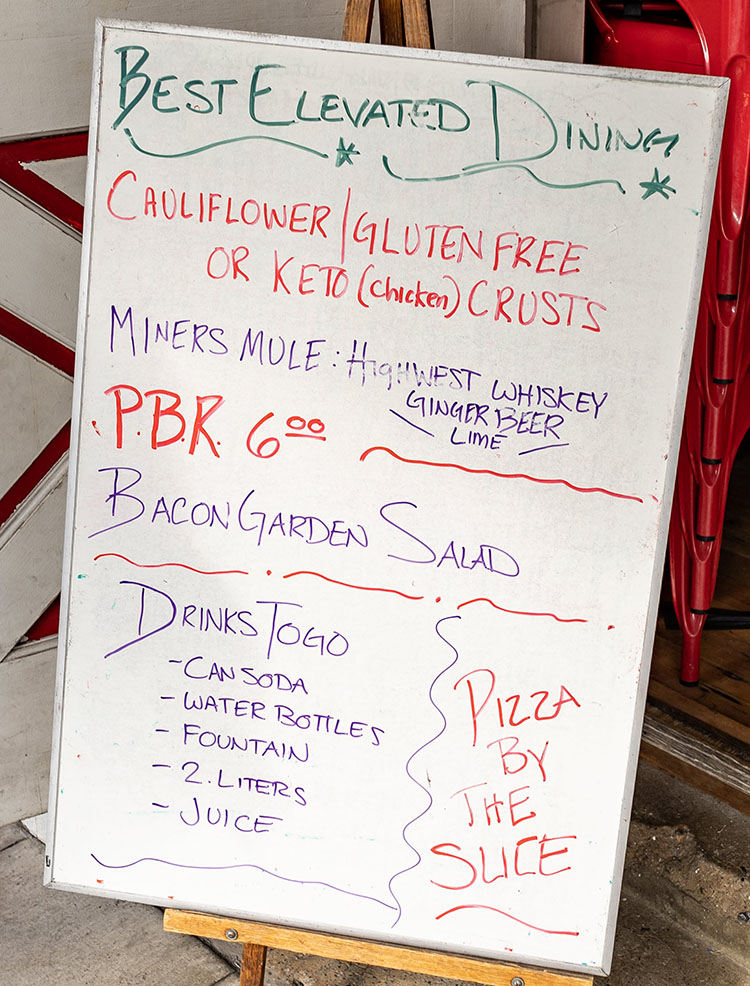 BEST ELEVATED DINING
CAULIFLOWER/GLUTEN FREE
OR KETO (chicken) CRUSTS
MINERS MULE: HIGHWEST WHISKEY
GINGER BEER
LIME
P.B.R. 6.00
BACON GARDEN SALAD
DRINKS TOGO
- CAN SODA
- WATER BOTTLES
- FOUNTAIN
- 2. LITERS
- JUICE
PIZZA
BY
THE
SLICE